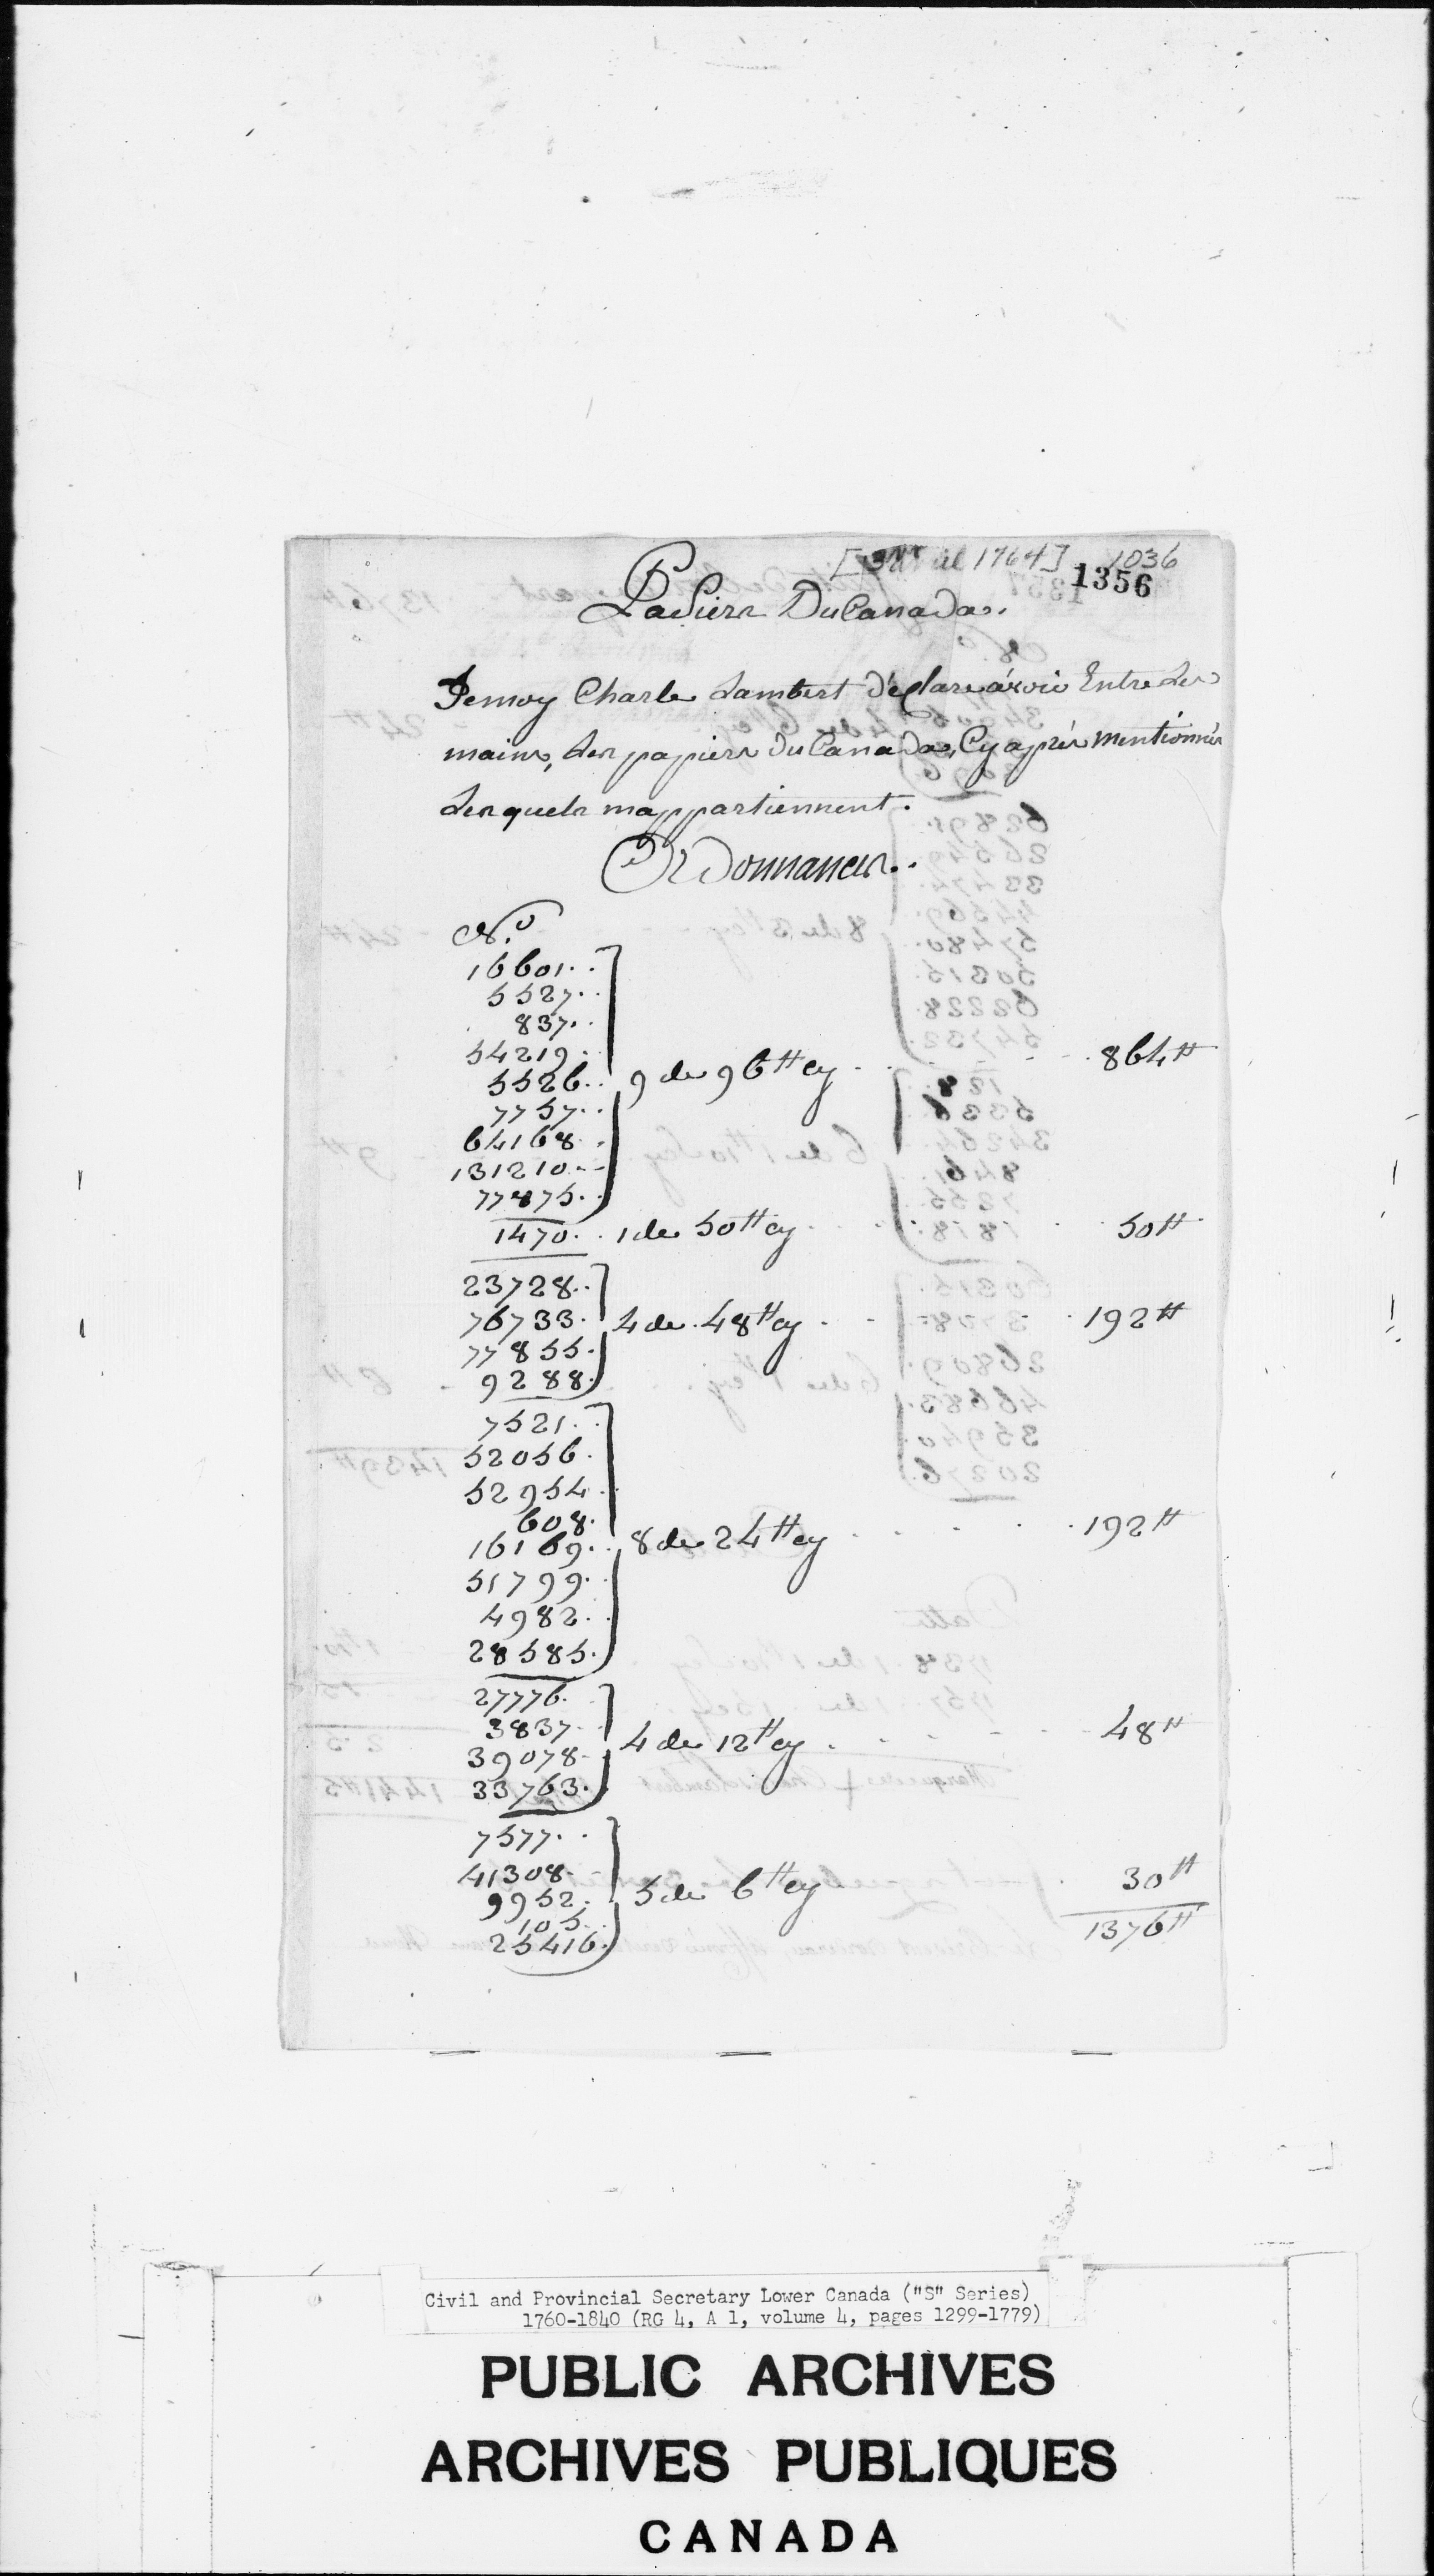 1764] 1036
1356
Papiers Du Canada.
Je moy Charle Lambert déclare avoir Entre Les
mains, Les papiers Du Canada, Cy aprés mentionnés
Lesquels mappartiennent.
Ordonnances.
N.o
16601.
5527.
837.
54219.
5526. 9 de 96tt cy 864tt
7757.
64168.
131210.
77875.
1470. 1 de 50tt cy 50tt
23728.
76733. 4 de 48tt cy 192tt
77855.
9288.
7521.
52056.
52954.
608.
16169. 8 de 24tt cy 192tt
51799.
4982.
28585.
27776.
3837. 4 de 12tt cy 48tt
39078.
33763.
7577.
41308.
9952. 5 de 6tt cy 30tt
105.
25416. 1376tt
Civil and Provincial Secretary Lower Canada ("S" Series)
1760-1840 (RG 4, A 1, volume 4, pages 1299-1779)
PUBLIC ARCHIVES
ARCHIVES PUBLIQUES
CANADA